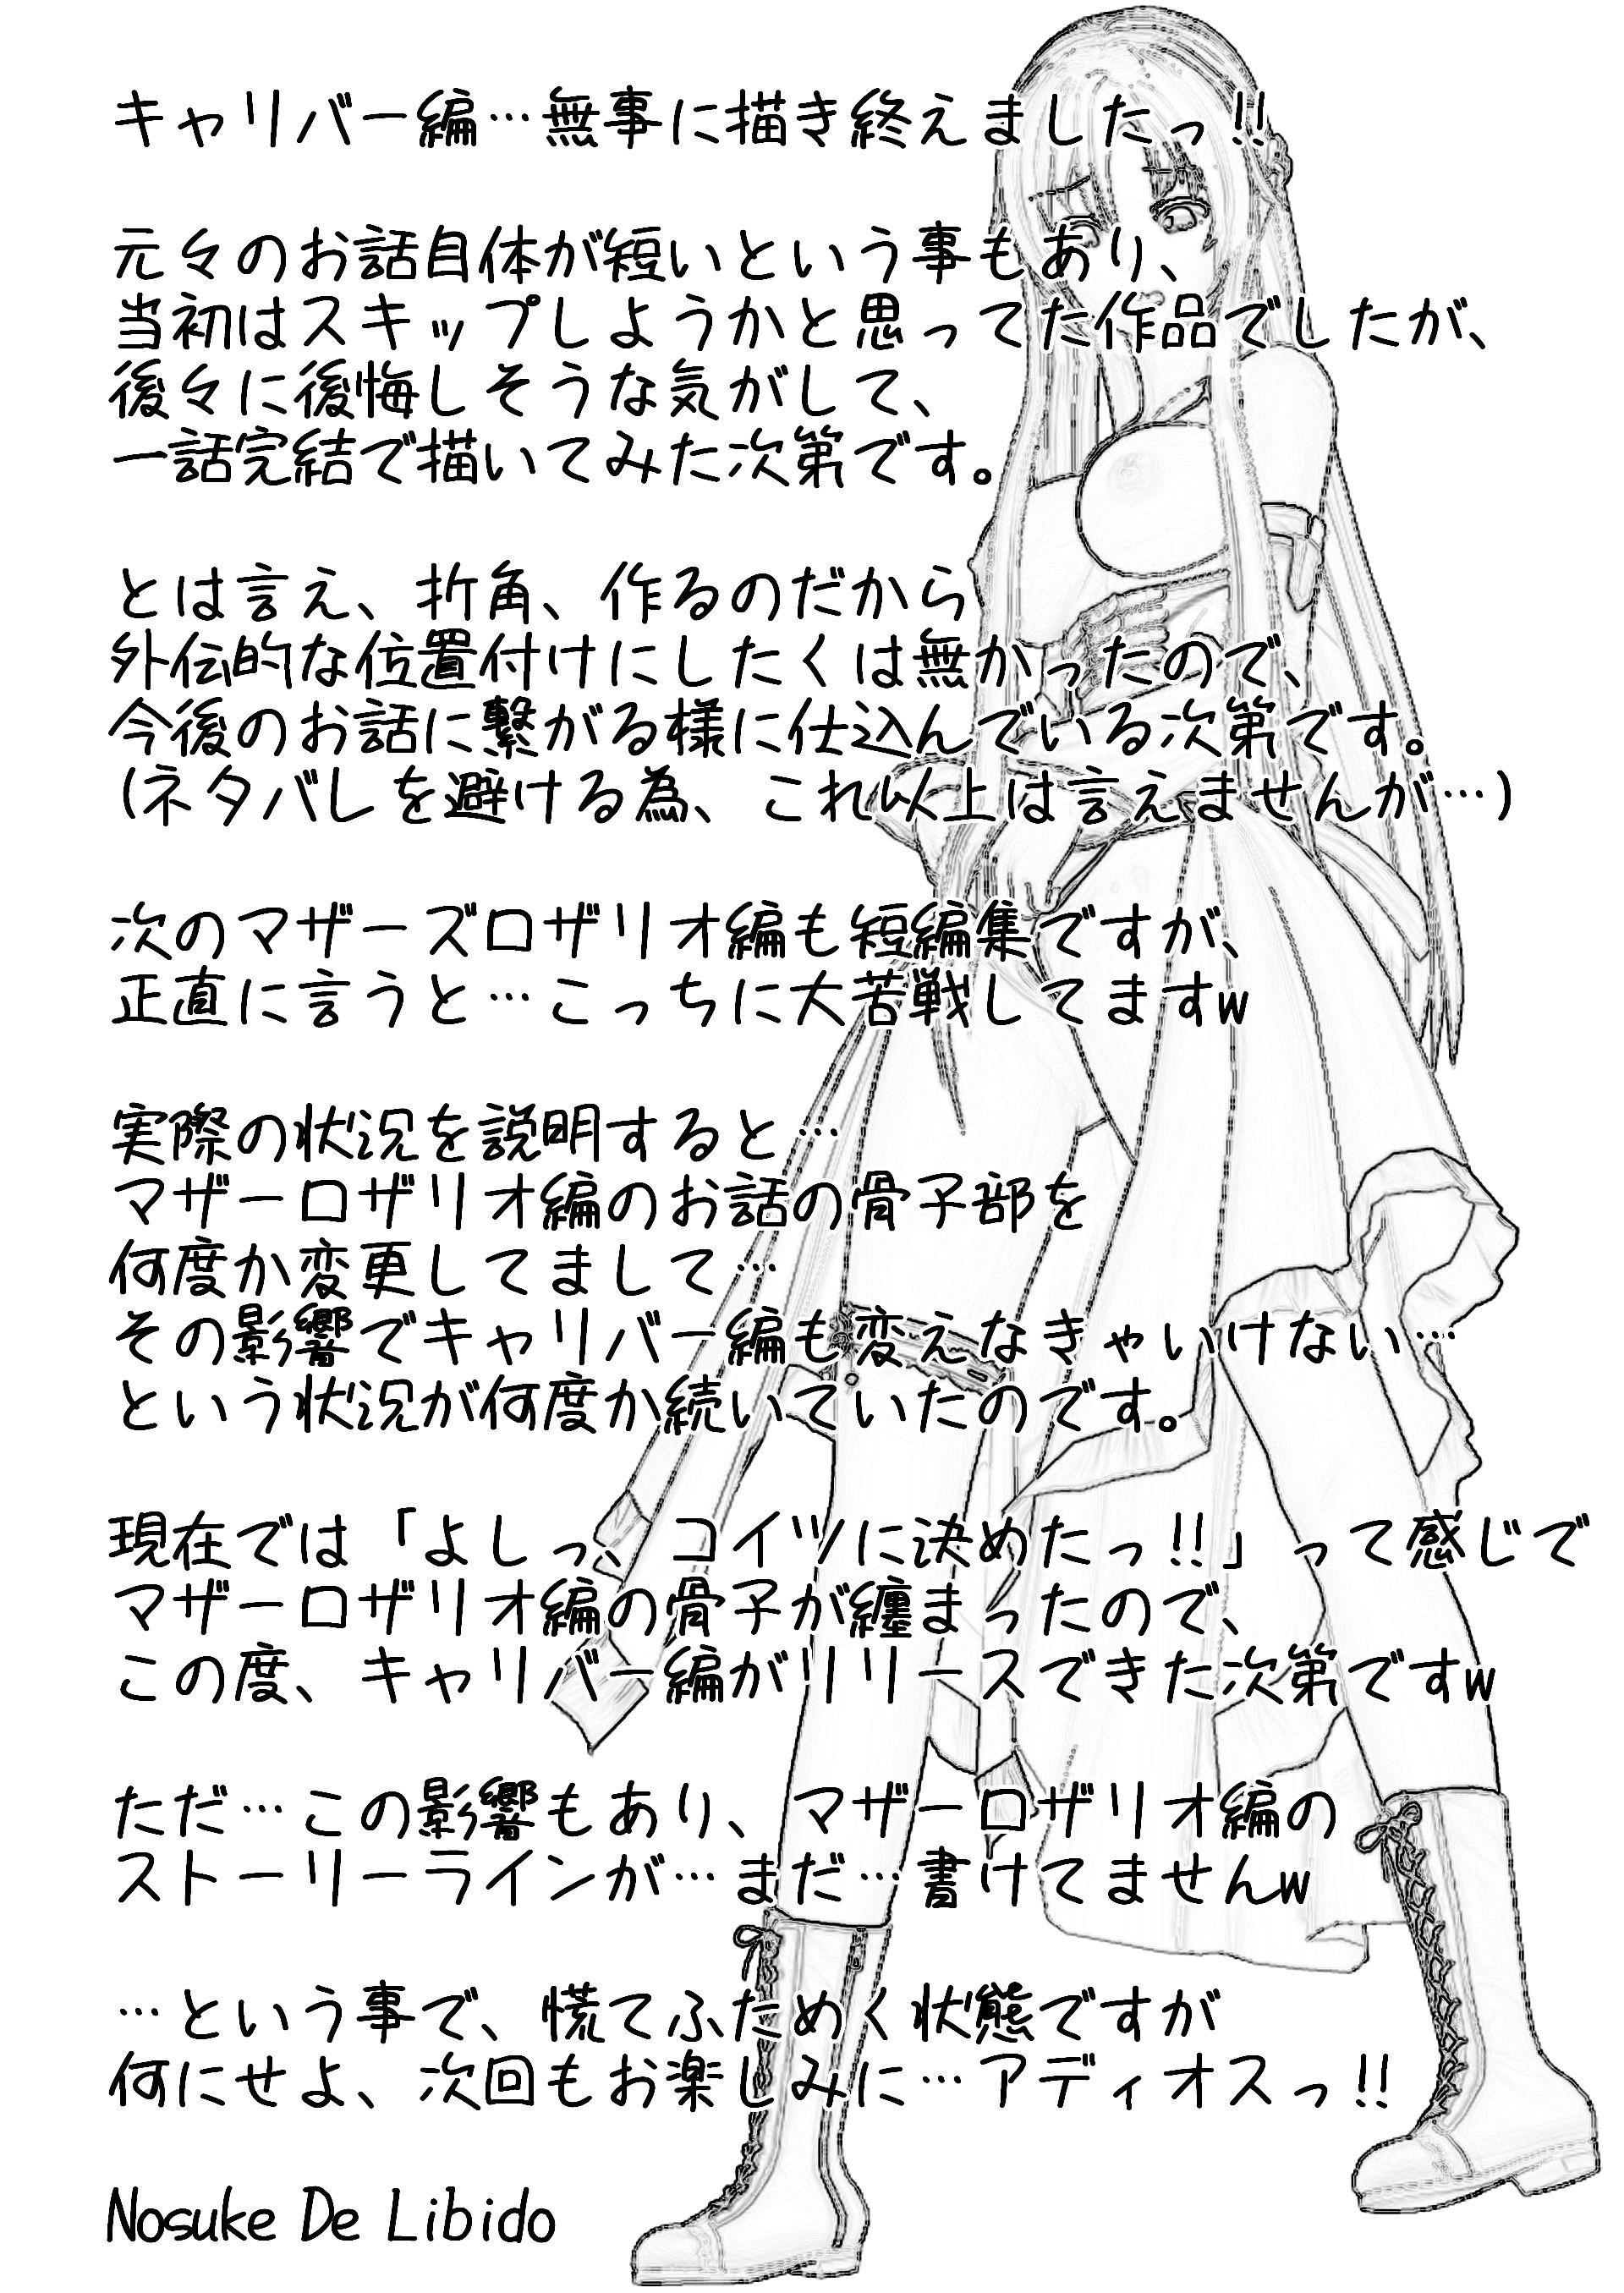 キャリバー編…無事に描き終えましたっ!!
元々のお話自体が短いという事もあり、
当初はスキップしようかと思ってた作品でしたが、
後々に後悔しそうな気がして、
一話完結で描いてみた次第です。
とは言え、折角、作るのだから
外伝的な位置付けにしたくは無かったので、
今後のお話に繋がる様に仕込んでいる次第です。
(ネタバレを避ける為、これ以上は言えませんが…)
次のマザーズロザリオ編も短編集ですが、
正直に言うと…こっちに大苦戦してますw
実際の状況を説明すると…
マザーロザリオ編のお話の骨子部を
何度か変更してまして…
その影響でキャリバー編も変えなきゃいけない…
という状況が何度か続いていたのです。
現在では「よしっ、コイツに決めたっ!!」って感じで
マザーロザリオ編の骨子が纏まったので、
この度、キャリバー編がリリースできた次第ですw
ただ…この影響もあり、マザーロザリオ編の
ストーリーラインが…まだ…書けてませんw
…という事で、慌てふためく状態ですが
何にせよ、次回もお楽しみに…アディオスっ!!
Nosuke De Libido